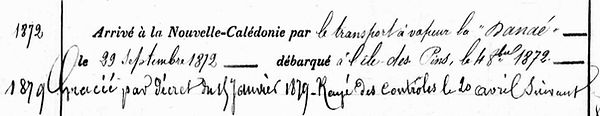 1872 Arrivé à la Nouvelle-Calédonie par le transport à vapeur la "Danaé"
le 22 Septembre 1872 débarqué à l'île des Pins, le 4 8bre 1872.
1879 Gracié par décret du 15 janvier 1879 - Rayé des contrôles le 20 avril Suivant